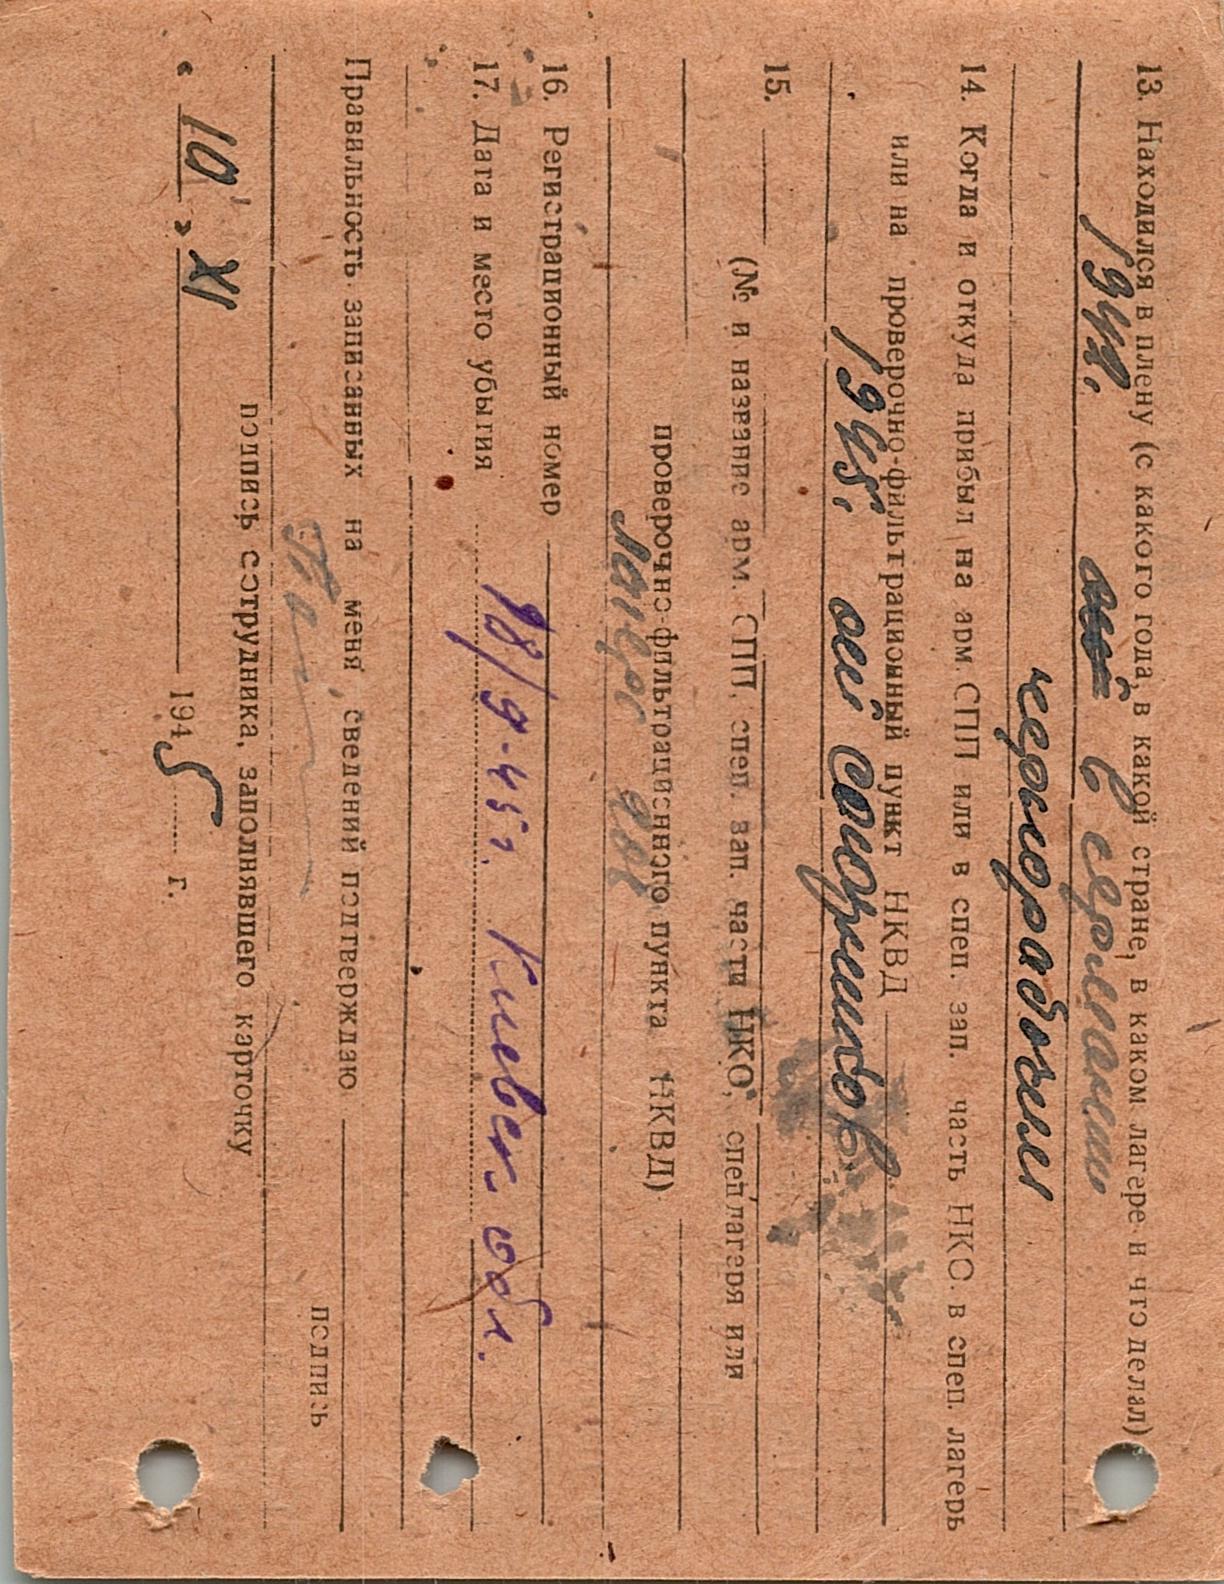 13. Находился в плену (с какого года, в какой стране, в каком лагере и что делал)
1942. в Германии
чернорабочим
14. Когда и откуда прибыл на арм. СПП или в спец. зап. часть НКО. в спец. лагерь
или на проверочно-фильтрационный пункт НКВД
1945. от союзников
15.
(№ и название арм. СПП, спец. зап. части НКО, спецлагеря или
проверочно-фильтрационного пункта НКВД)
16. Регистрационный номер
17. Дата и место убытия
18/9-45г. Киевск. обл.
Правильность записанных на меня сведений подтверждаю
подпись
подпись сотрудника, заполнявшего карточку
„ 10 " XI 1945 г.